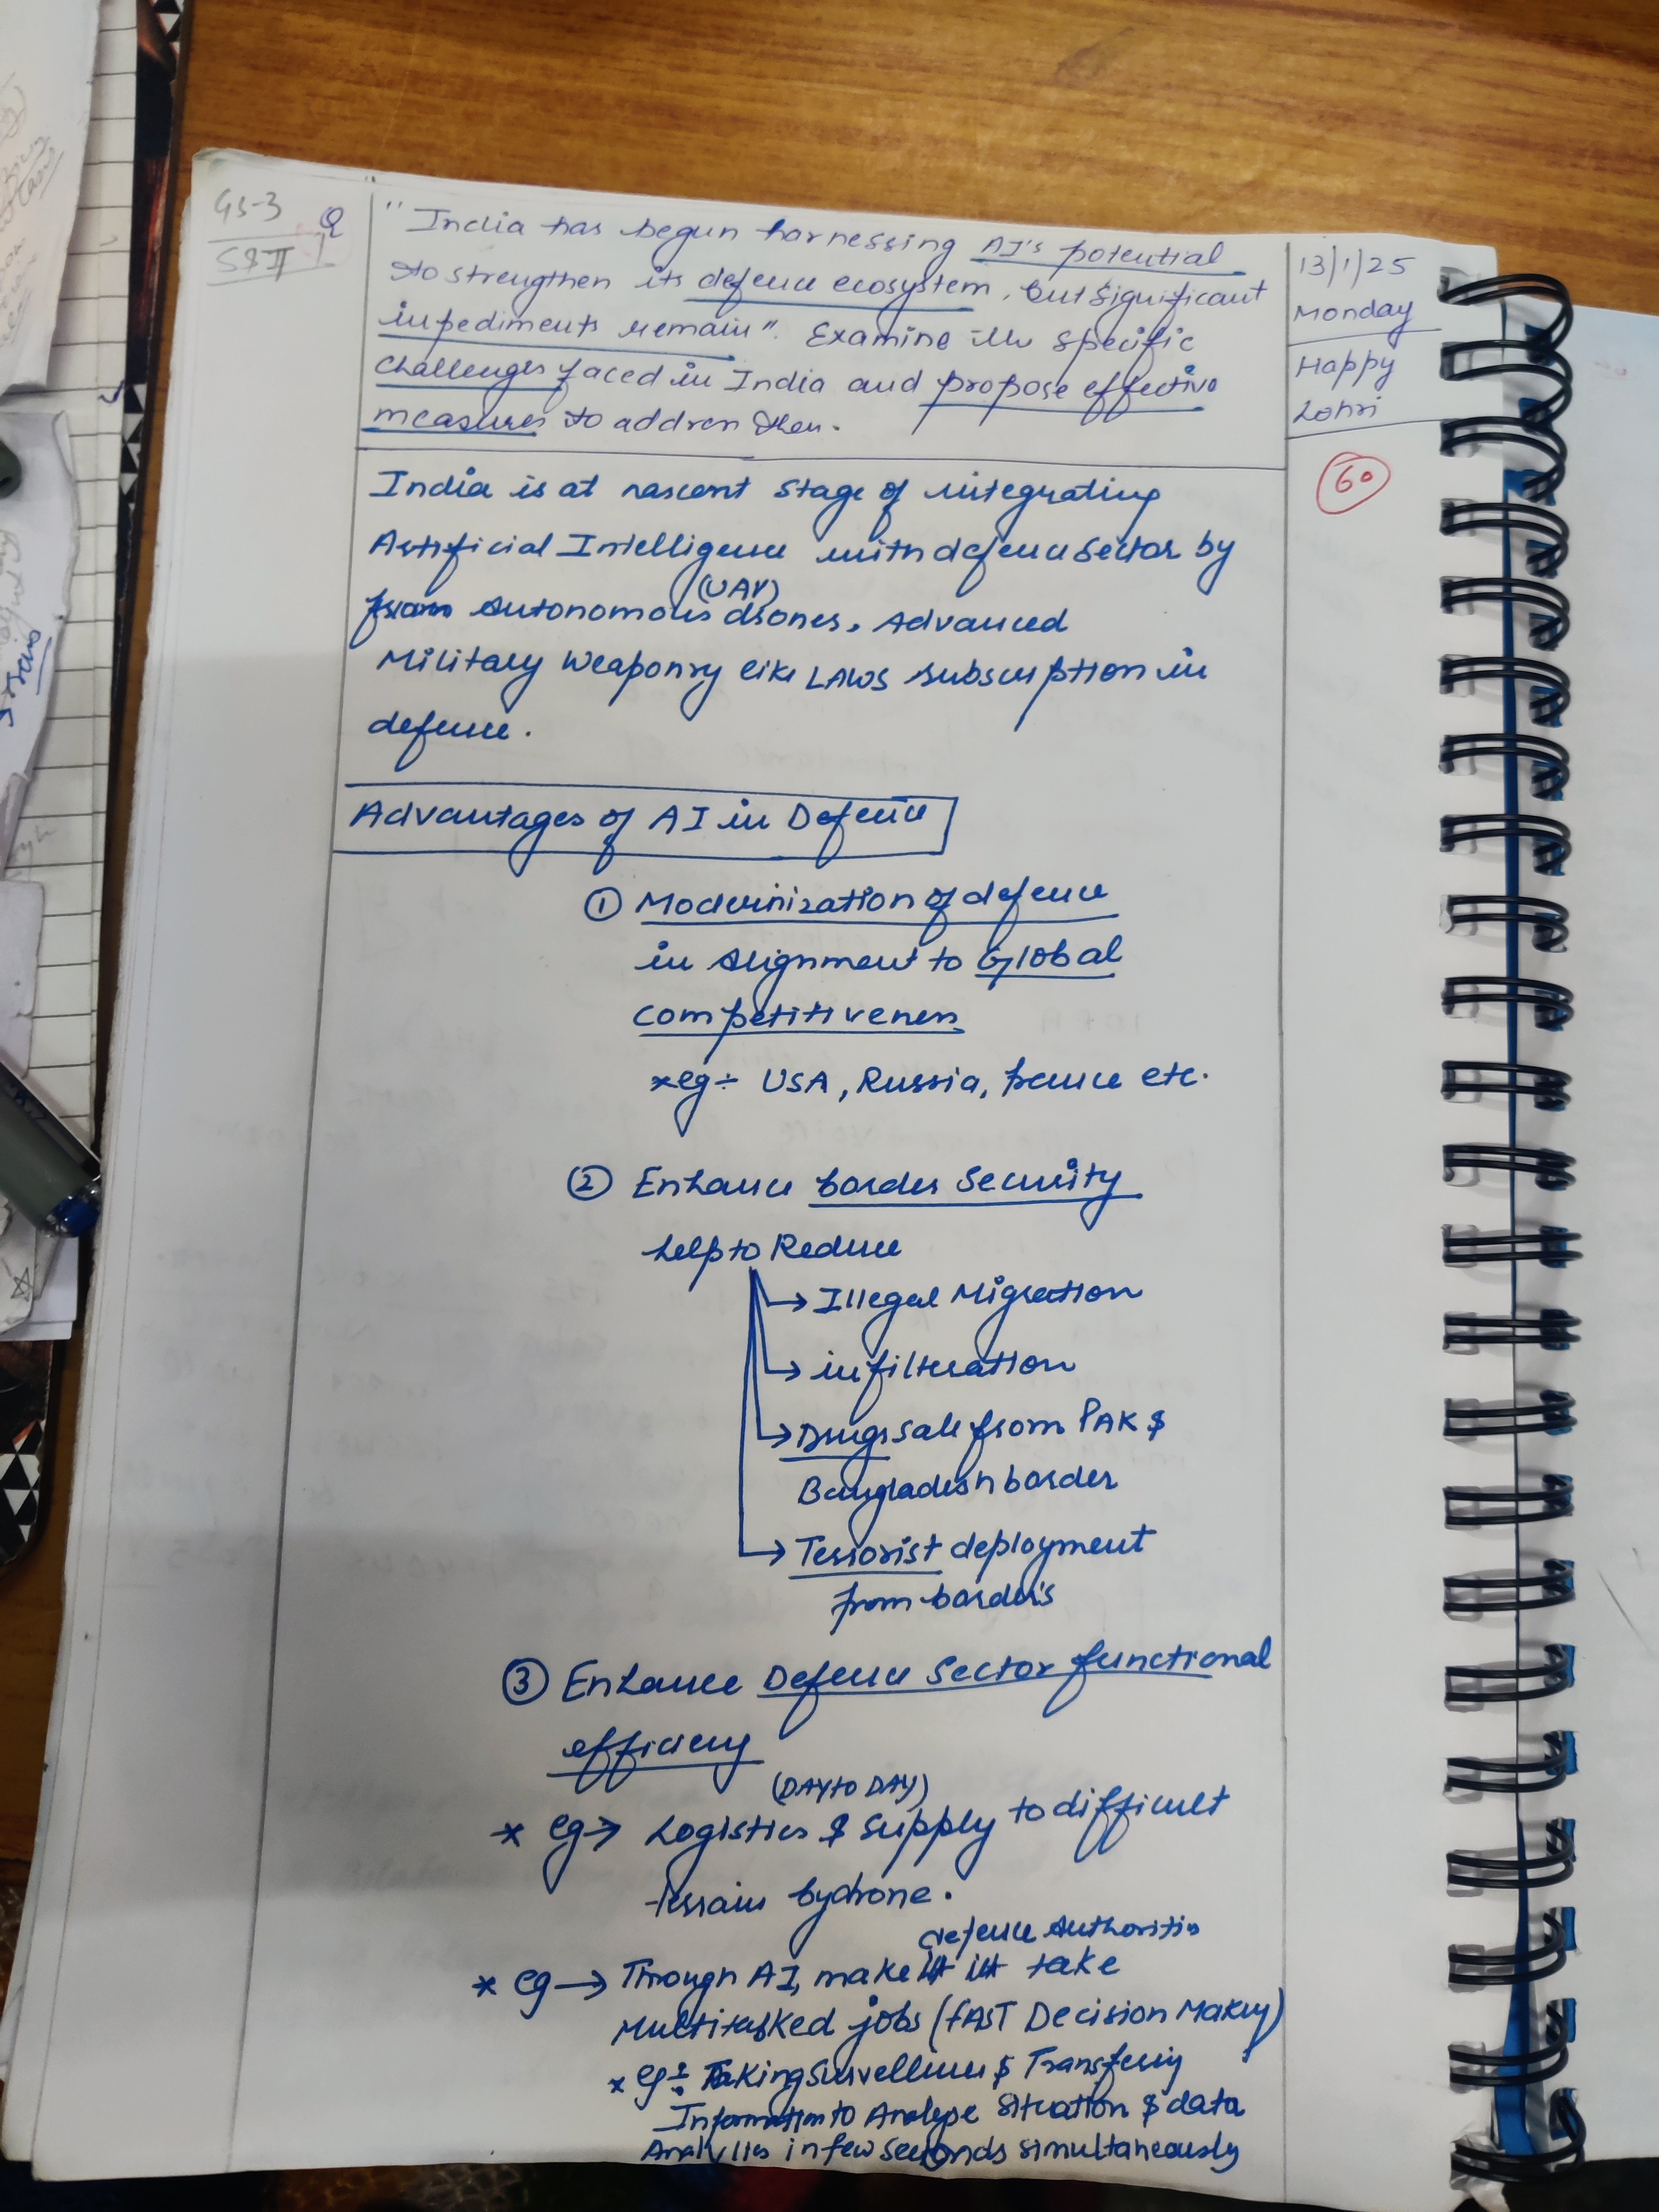 GS-3
S&T II
Q
"India has begun harnessing AI's potential
to strengthen its defence ecosystem, but significant
impediments remain". Examine the specific
challenges faced in India and propose effective
measures to address them.
13/1/25
Monday
Happy
Lohri
60
India is at nascent stage of integrating
Artificial Intelligence with defence sector by
from autonomous drones, Advanced
(UAV)
Military Weaponry like LAWS subscription in
defence.
Advantages of AI in Defence
① Modernization of defence
in alignment to Global
competitiveness
*eg÷ USA, Russia, France etc.
② Enhance border Security
help to Reduce
→ Illegal Migration
→ infilteration
→ Drugs sale from PAK &
Bangladesh border
→ Terrorist deployment
from border's
③ Enhance Defence Sector functional
efficiency
(DAY to DAY)
* eg → Logistics & Supply to difficult
terrain by drone.
defence Authorities
* eg → Through AI, make it take
Multitasked jobs (fAST Decision Making)
* eg÷ Taking Survellience & Transfering
Information to Analyse Situation & data
Analytics in few seconds simultaneously